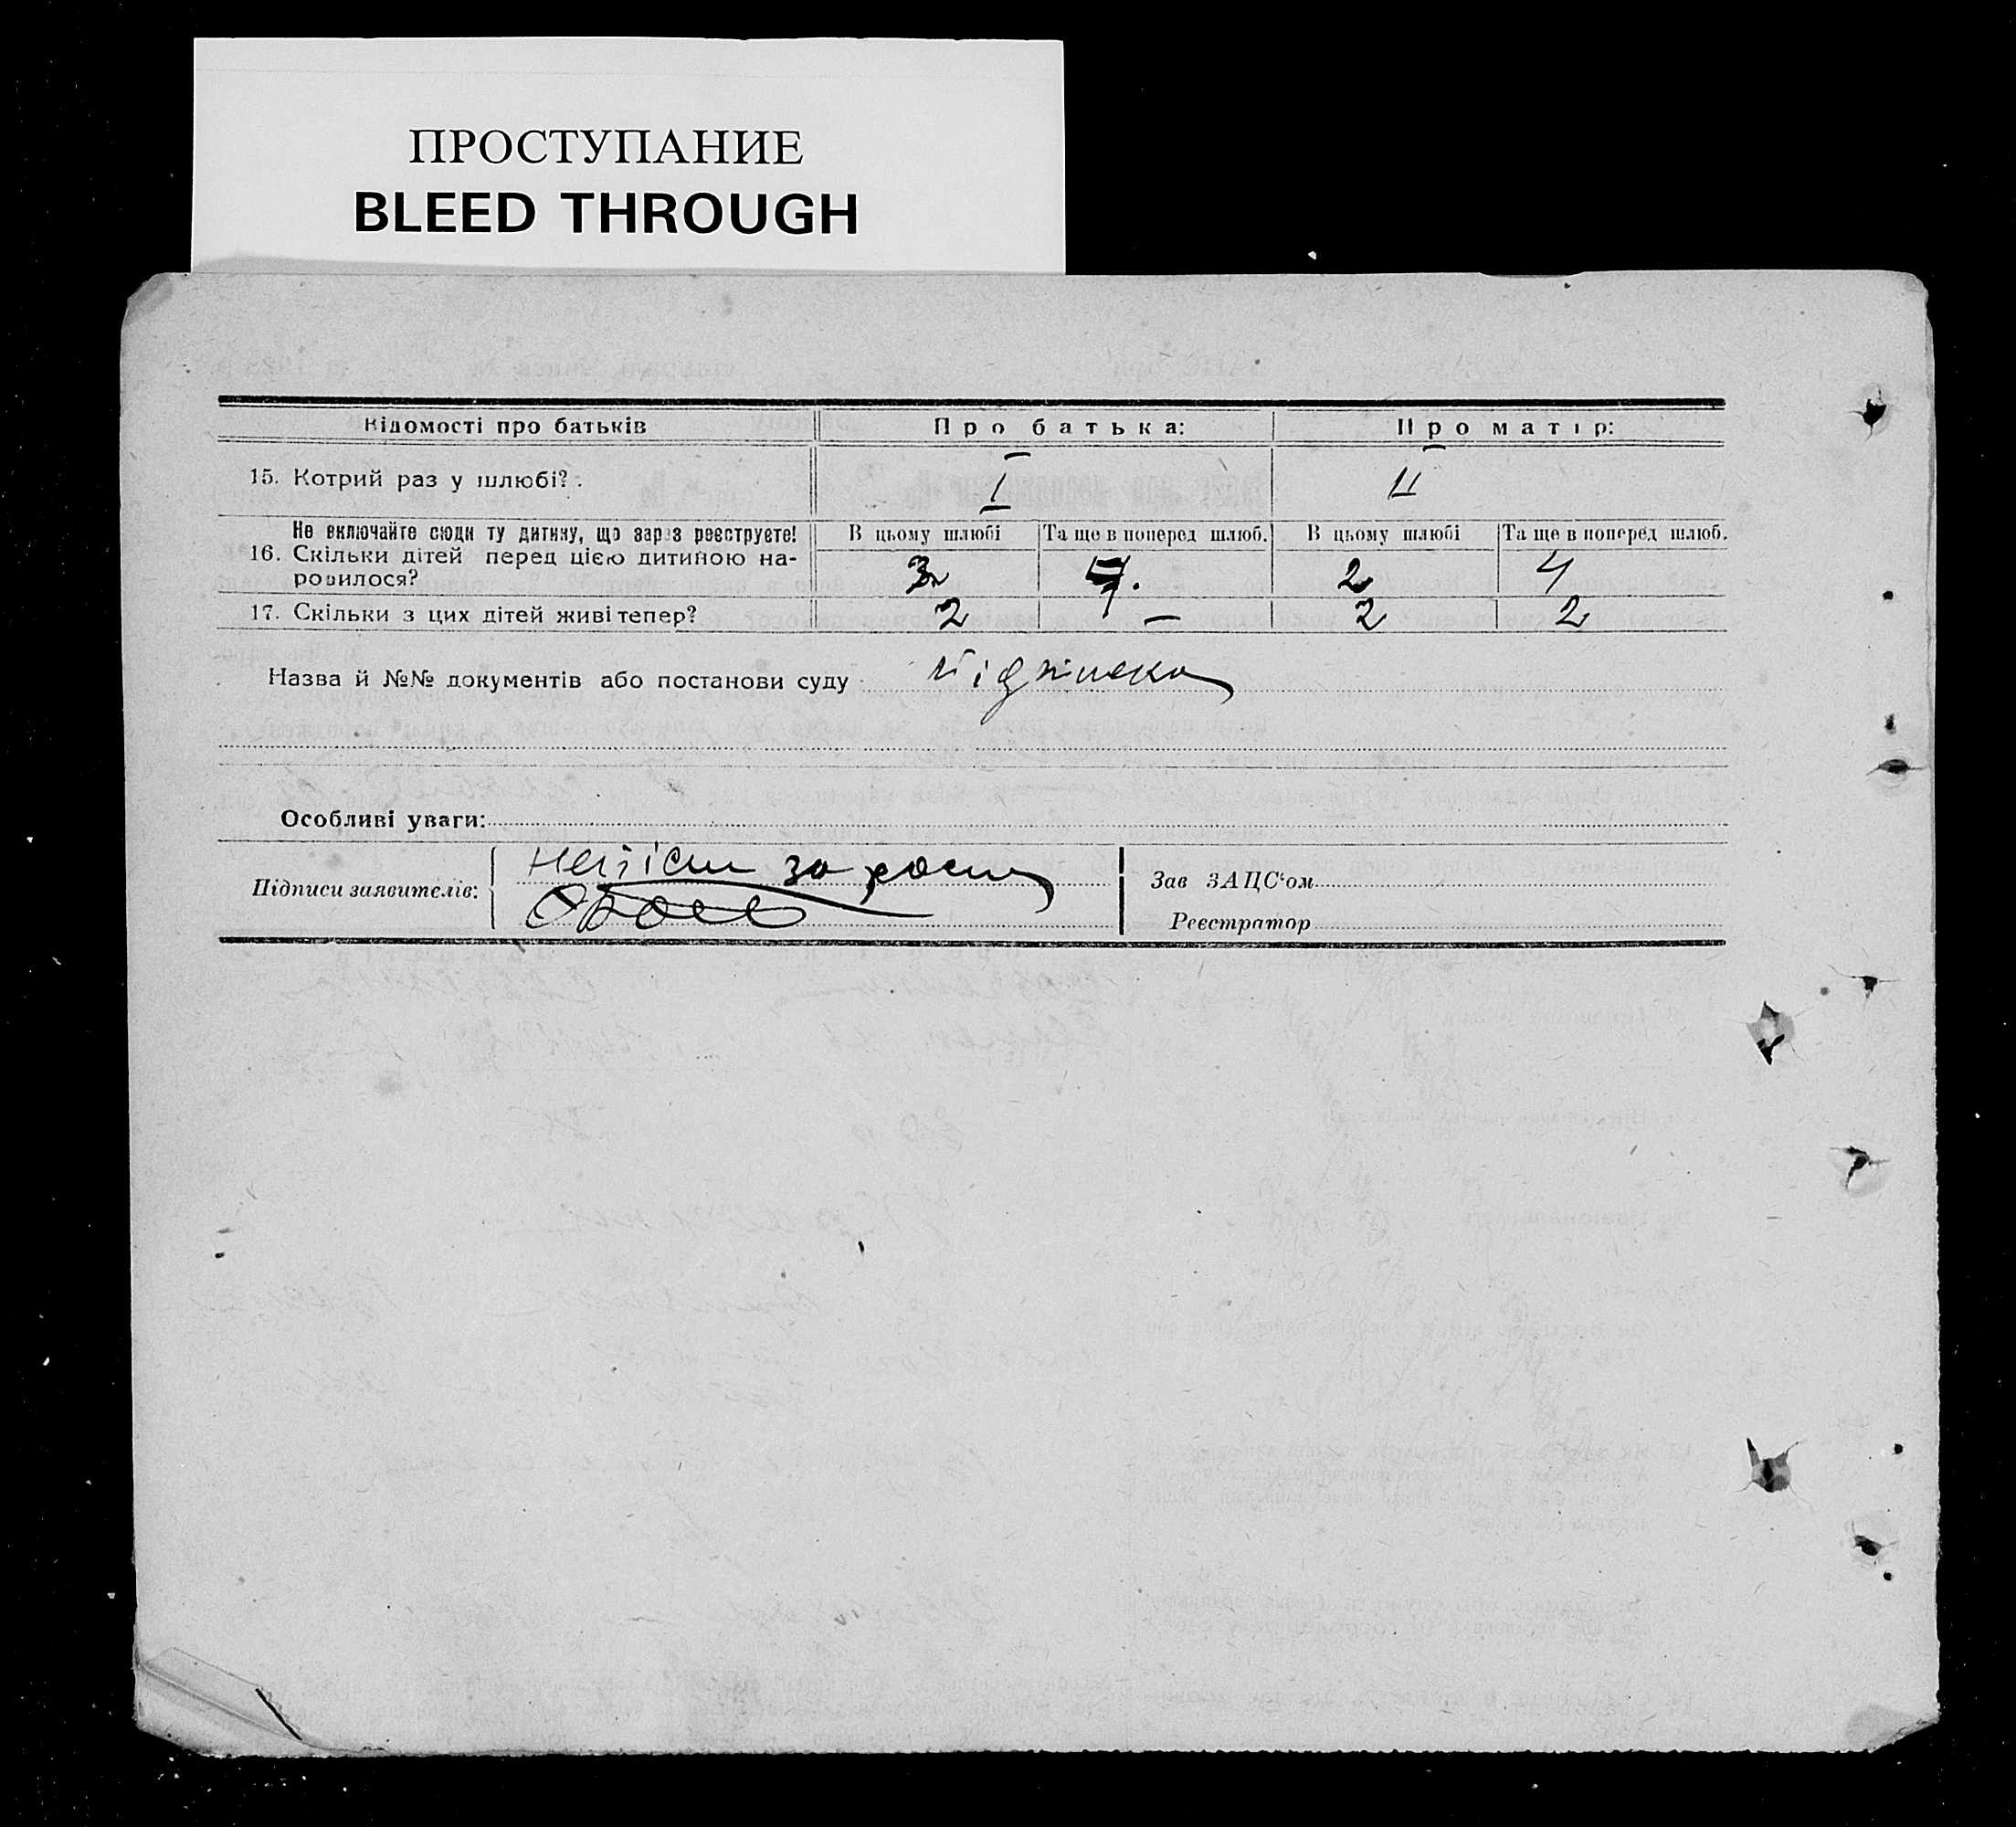 ПРОСТУПАНИЕ
BLEED THROUGH
Відомості про батьків Про батька: Про матір:
15. Котрий раз у шлюбі? I II
Не включайте сюди ту дитину, що зараз реєструєте! В цьому шлюбі Та ще в поперед шлюб. В цьому шлюбі Та ще в поперед шлюб.
16. Скільки дітей перед цією дитиною на-
родилося? 2 4
17. Скільки з цих дітей живі тепер? 2 — 2 2
Назва й №№ документів або постанови суду підписка
Особливі уваги:
Підписи заявителів: за
Зав ЗАЦС'ом
Реєстратор